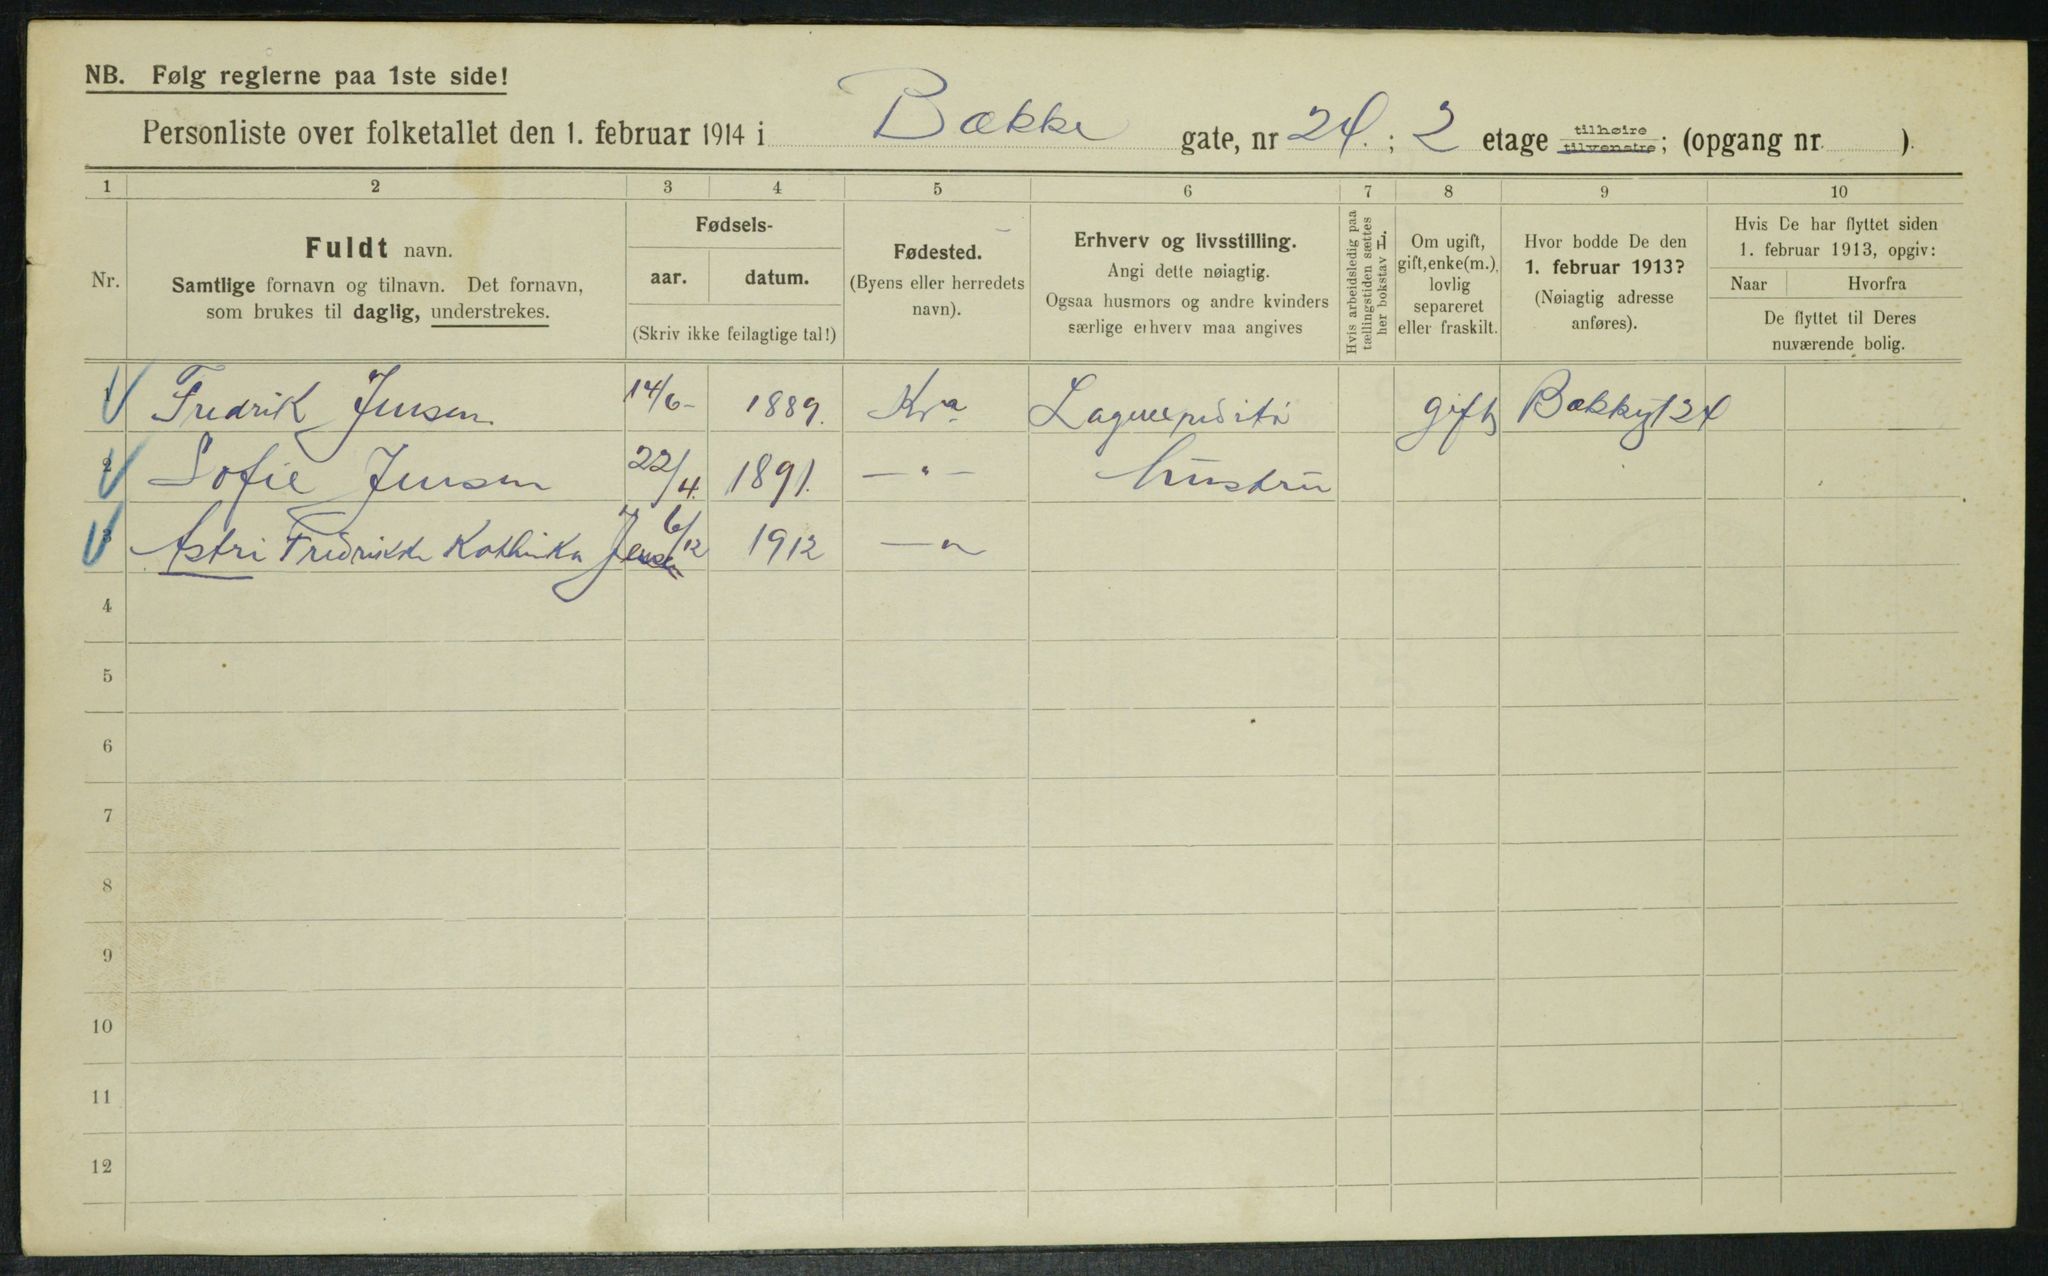 NB. Følg reglerne paa 1ste side!
Personliste over folketallet den 1. februar 1914 i Bække gate, nr 24.; 2 etage tilhøire tilvenstre; (opgang nr. ).
1 2 3 4 5 6 7 8 9 10
Nr.
Fuldt navn.
Samtlige fornavn og tilnavn. Det fornavn,
som brukes til daglig, understrekes.
Fødsels-
aar. datum.
(Skriv ikke feilagtige tal!)
Fødested.
(Byens eller herredets
navn).
Erhverv og livsstilling.
Angi dette nøiagtig.
Ogsaa husmors og andre kvinders
særlige erhverv maa angives
Hvis arbeidsledig paa
tællingstiden sættes
her bokstav L.
Om ugift,
gift, enke(m.),
lovlig
separeret
eller fraskilt.
Hvor bodde De den
1. februar 1913?
(Nøiagtig adresse
anføres).
Hvis De har flyttet siden
1. februar 1913, opgiv:
Naar Hvorfra
De flyttet til Deres
nuværende bolig.
1 Fredrik Jensen 14/6- 1889. Kra Gift Bækkegt 24
2 Sofie Jensen 22/4. 1891. —"— hustru
3 Astri Fredrikke Kathinka Jensen 6/12 1912 —"
4
5
6
7
8
9
10
11
12